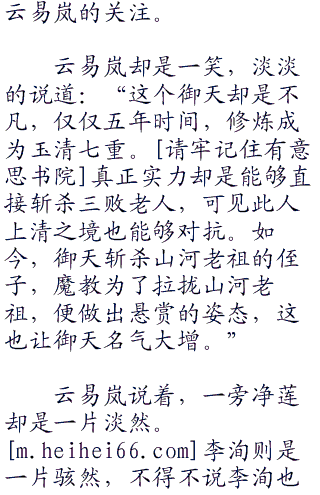 云易岚的关注。
云易岚却是一笑，淡淡
的说道：“这个御天却是不
凡，仅仅五年时间，修炼成
为玉清七重。[请牢记住有意
思书院]真正实力却是能够直
接斩杀三败老人，可见此人
上清之境也能够对抗。如
今，御天斩杀山河老祖的侄
子，魔教为了拉拢山河老
祖，便做出悬赏的姿态，这
也让御天名气大增。”
云易岚说着，一旁净莲
却是一片淡然。
[m.heihei66.com]李洵则是
一片骇然，不得不说李洵也